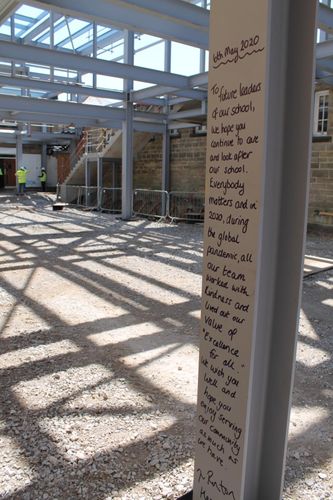 6th May 2020
To future leaders
of our school,
we hope you
continue to care
and look after
our school.
Everybody
matters and in
2020, during
the global
pandemic, all
our team
worked with
kindness and
lived out our
value of
"Excellence
for all"
we wish you
well and
hope you
enjoy serving
our community
as much as
we have.